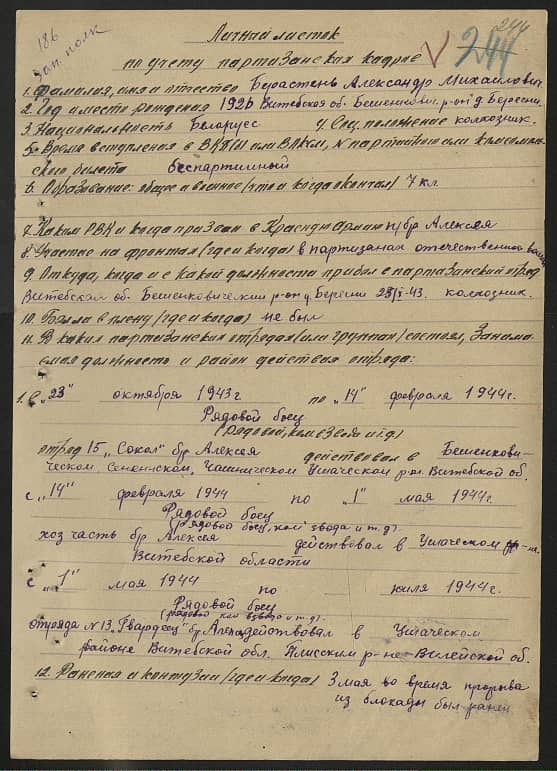 186
зап. полк
244
244
Личный листок
по учету партизанских кадров
1. Фамилия, имя и отчество Бурастень Александр Михайлович
2. Год и место рождения 1926 Витебская об. Бешенкович. р-он д. Берешни
3. Национальность Беларус 4. Соц. положение колхозник.
5. Время вступления в ВКП(б) или ВЛКСМ, N партийного или комсомоль-
ского билета беспартийный
6. Образование: общее и военное (что и когда окончил) 7 кл.
7. Каким РВК и когда призван в Красную Армию п/бр Алексея
8. Участие на фронтах (где и когда) в партизанах отечественной войны
9. Откуда, когда и с какой должности прибыл в партизанский отряд
Витебская об. Бешенковический р-он д. Берешни 43. колхозник.
10. Был ли в плену (где и когда) не был
11. В каких партизанских отрядах (или группах) состоял, занима-
емая должность и район действия отряда:
1. С "23" октября 1943 г по "14" февраля 1944 г.
Рядовой боец
(рядовой, ком взвода и тд)
отряд 15 "Сокол" бр Алексея действовал в Бешенкови-
ческом, Сенненском, Чашническом Ушачском р-он. Витебской об.
с "14" февраля 1944 по "1" мая 1944 г.
Рядовой боец
(рядовой боец, ком взвода и т.д.)
хоз часть бр Алексея действовал в Ушачском р-не.
Витебской области
с "1" мая 1944 по июля 1944 г.
Рядовой боец
(рядовой ком взвода и т.д.)
отряда N 13 "Гвардеец" бр Алексея действовал в Ушачском
районе Витебской обл. Плисским р-не Вилейской об.
12. Ранения и контузии (где и когда) 3 мая во время прорыва
из блокады был ранен